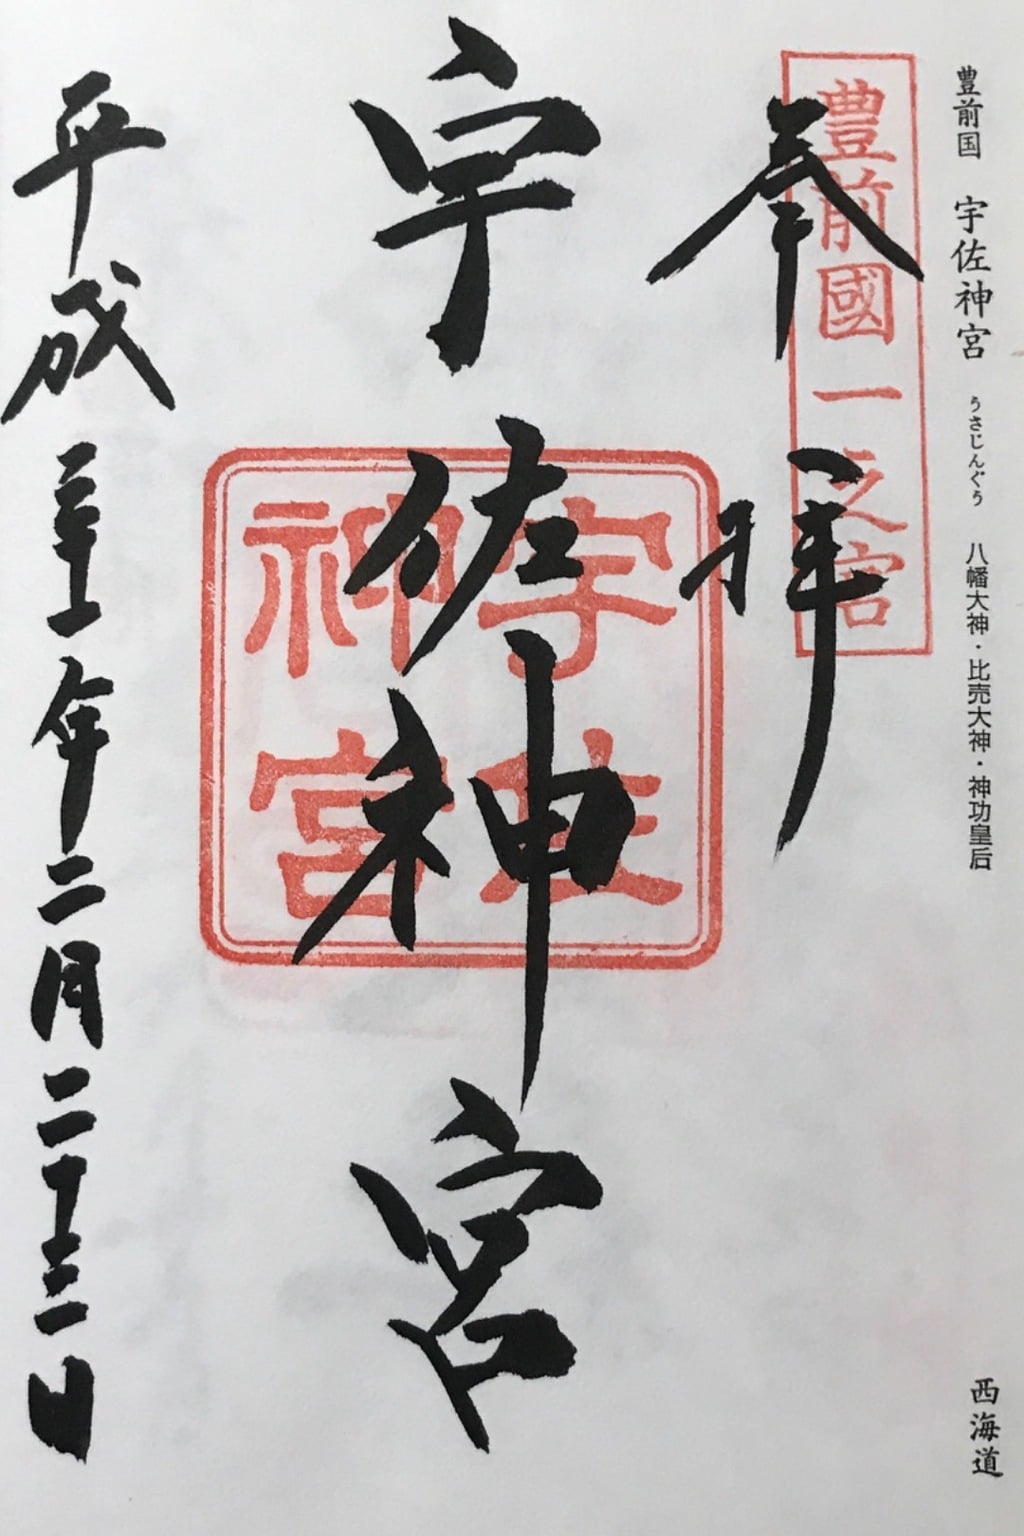 豊前国　宇佐神宮　うさじんぐう　八幡大神・比売大神・神功皇后
西海道
豊前國一之宮
奉拝
宇佐神宮
宇佐神宮
平成三十一年二月二十三日